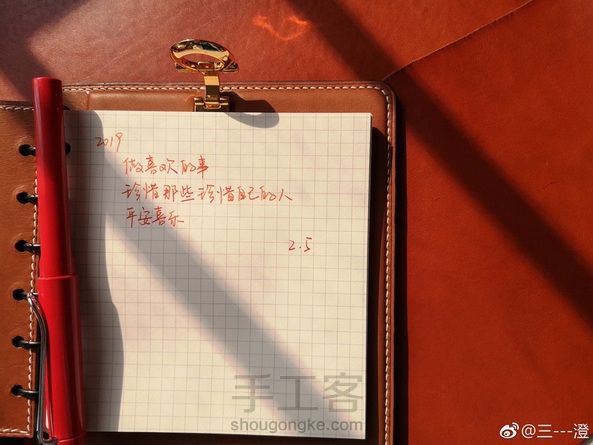 2019
做喜欢的事
珍惜那些珍惜自己的人
平安喜乐
2.5
手工客
shougongke.com
@三---澄